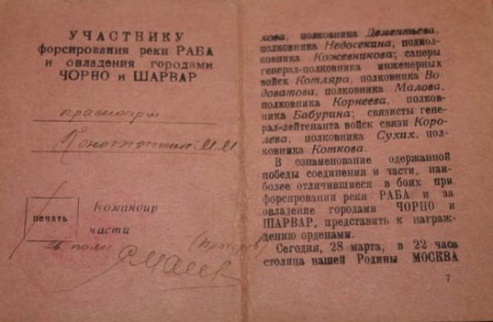 УЧАСТНИКУ
форсирования реки РАБА
и овладения городами
ЧОРНО и ШАРВАР
печать
Командир
части
хова, полковника Дементьева,
полковника Недосекина, подпол-
ковника Кожевникова; саперы
генерал-полковника инженерных
войск Котляра, полковника Во-
доватова, полковника Малова,
полковника Корнеева, полков-
ника Бабурина; связисты гене-
рал-лейтенанта войск связи Коро-
лева, полковника Сухих, пол-
ковника Коткова.
В ознаменование одержанной
победы соединения и части, наи-
более отличившиеся в боях при
форсировании реки РАБА и за
овладение городами ЧОРНО и
ШАРВАР, представить к награж-
дению орденами.
Сегодня, 28 марта, в 22 часа
столица нашей Родины МОСКВА
7